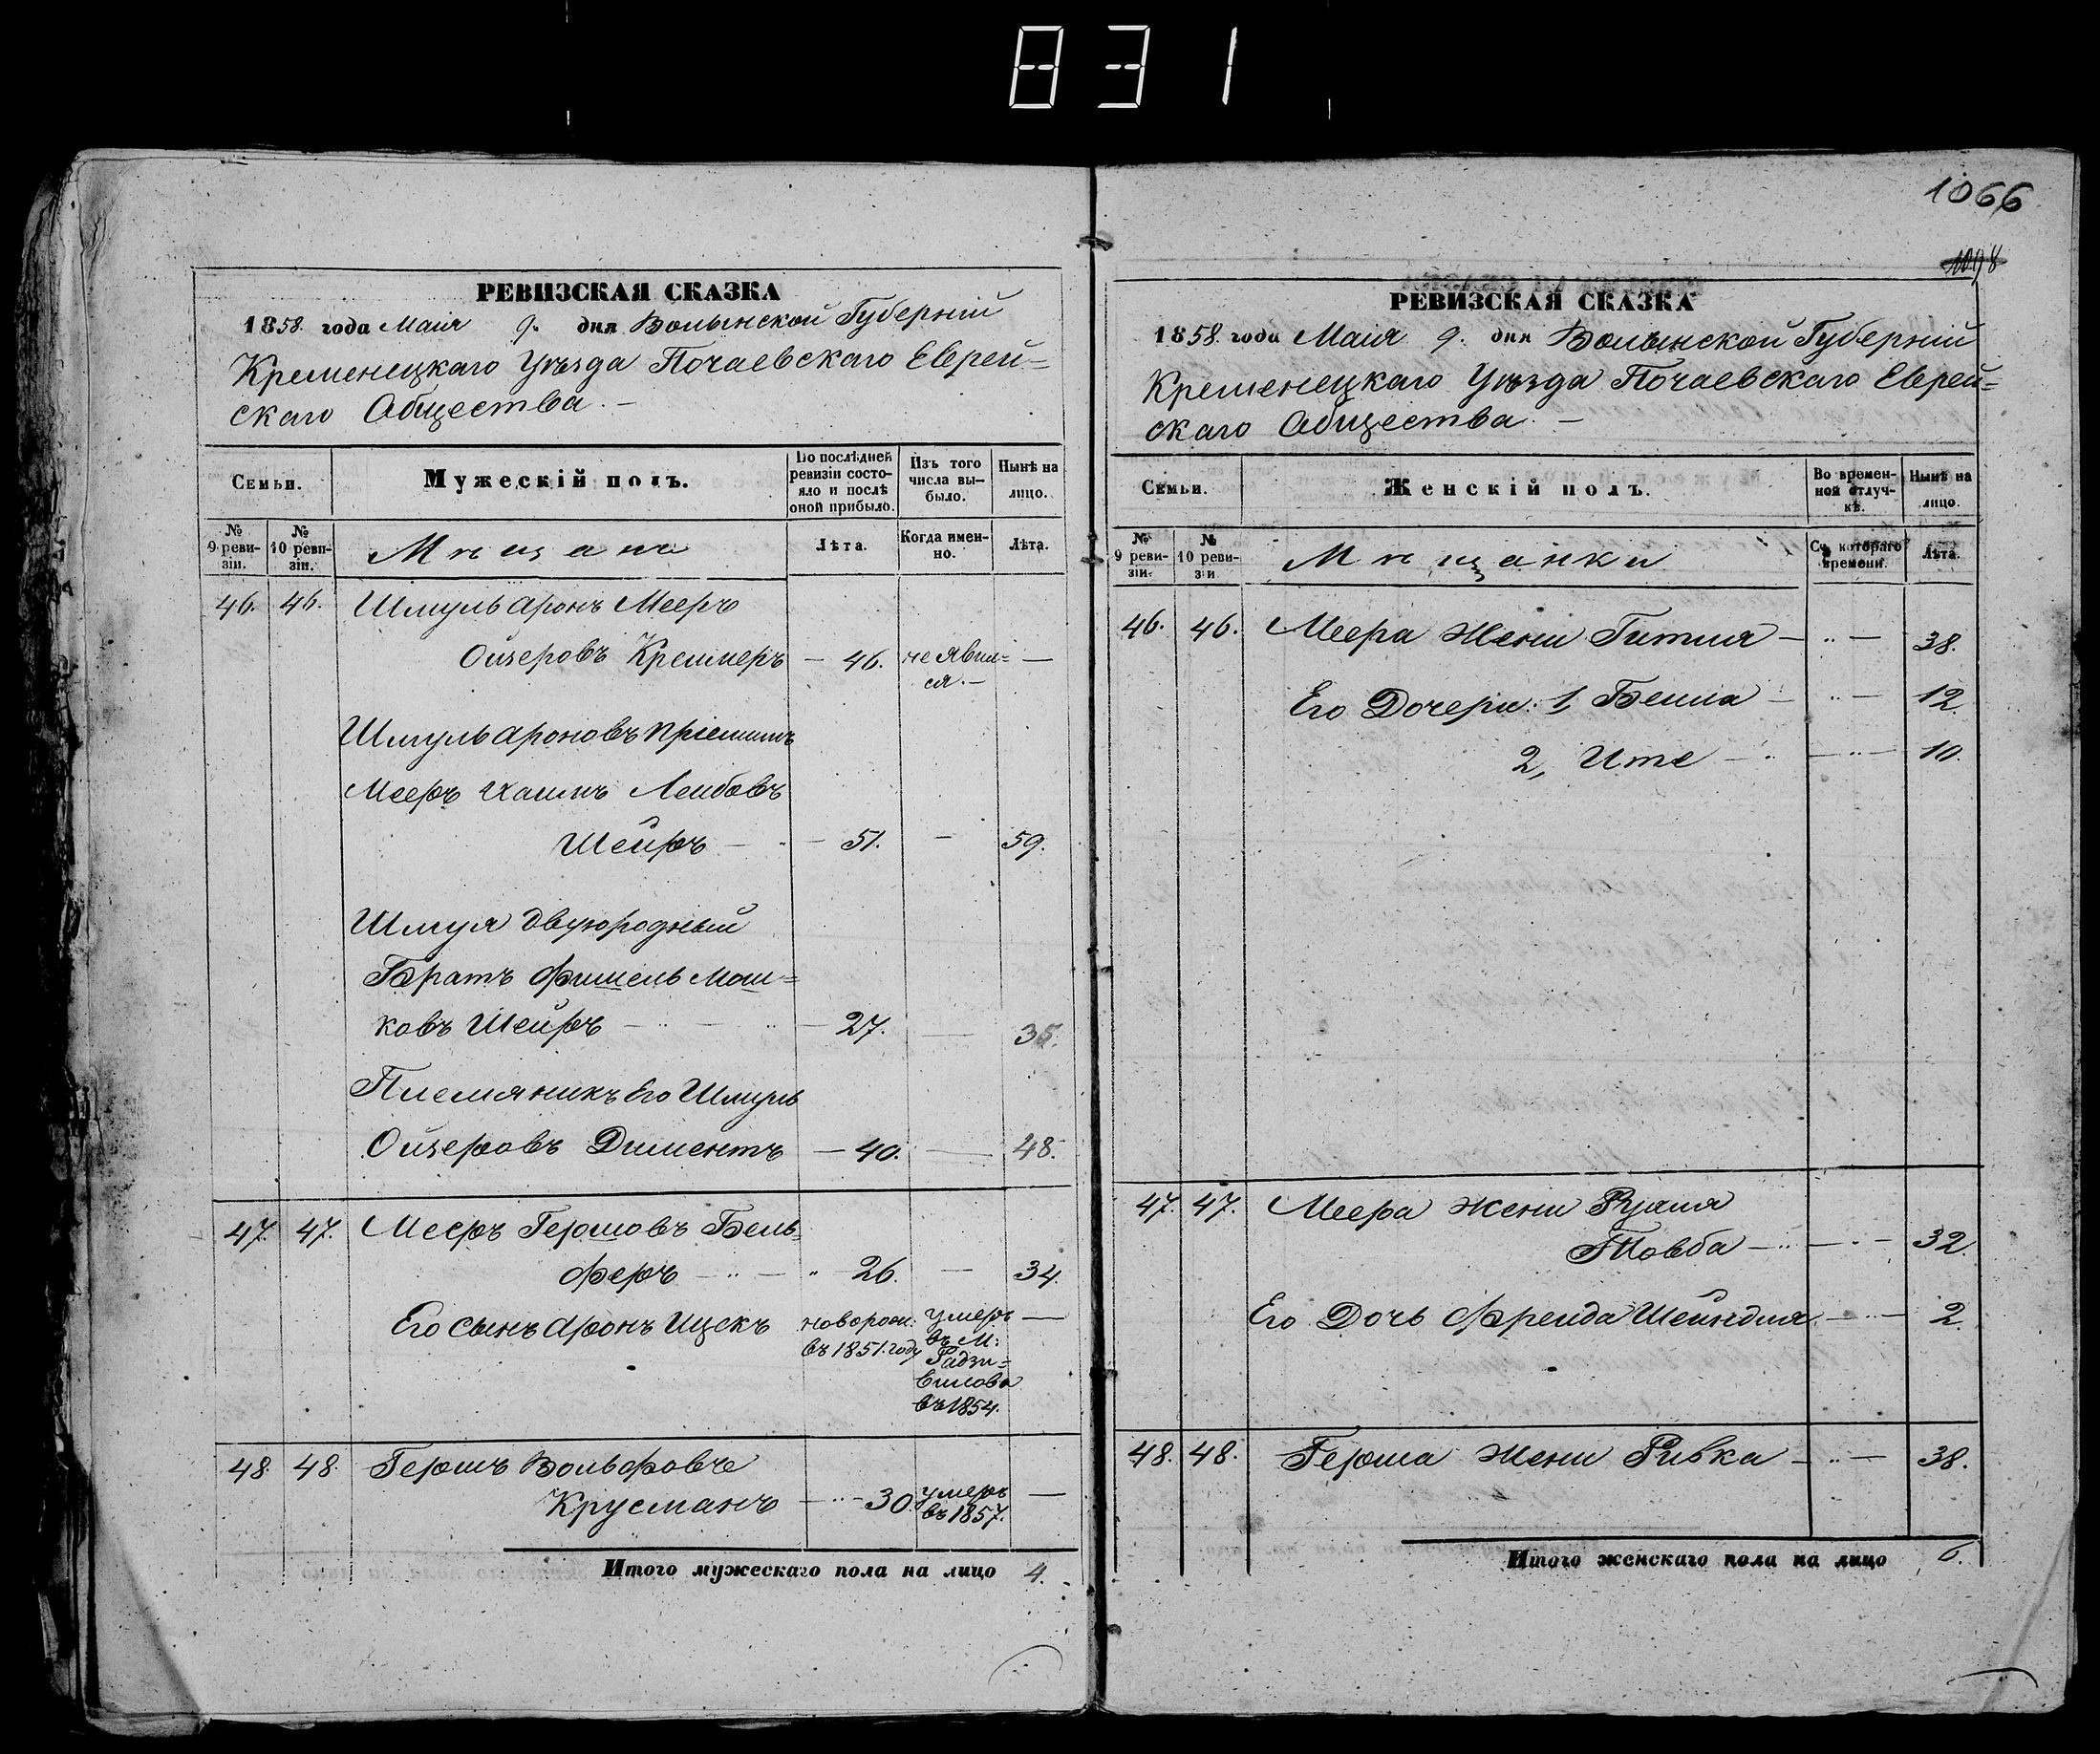 831
1066
1098
РЕВИЗСКАЯ СКАЗКА
1858. года Маія 9. дня Волынской Губерніи
Кременецкаго Уѣзда Почаевскаго Еврей=
скаго Общества. –
Семьи.
Мужескій полъ.
По послѣдней ревизіи состо-
яло и послѣ
оной прибыло.
Изъ того
числа вы-
было.
Нынѣ на
лицо.
№
9 реви-
зіи.
№
10 реви-
зіи.
Мѣщане
Лѣта.
Когда имен-
но.
Лѣта.
46. 46. Шмуль Аронъ Мееръ
Ойзеровъ Кремеръ – 46. не явил= –
ся. –
Шмуль Ароновъ пріемышъ
Мееръ Хаимъ Лейбовъ
Шейръ – – 51. – 59.
Шмуля двуюродный
Братъ Фишель Мош=
ковъ Шейръ – 27. – 35.
Племяникъ Его Шмуль
Ойзеровъ Диментъ – 40. – 48.
47. 47. Мееръ Гершовъ Бель=
феръ – " – " 26. – 34.
Его сынъ Аронъ Ицекъ новорож: умеръ –
въ 1851. году въ М:
Радзи=
вилова
въ 1854.
48. 48. Гершъ Вольфовъ
Крусманъ – " – 30. умеръ –
въ 1857.
Итого мужескаго пола на лицо 4.
РЕВИЗСКАЯ СКАЗКА
1858. года Маія 9. дня Волынской Губерніи
Кременецкаго Уѣзда Почаевскаго Еврей=
скаго Общества. –
Семьи.
Женскій полъ.
Во времен-
ной отлуч-
кѣ.
Нынѣ на
лицо.
№
9 реви-
зіи.
№
10 реви-
зіи
Мѣщанки
Съ котораго
времени.
Лѣта.
46. 46. Меера Жени Гитля – " – 38.
Его Дочери: 1, Бейла – " – 12.
2, Ите – " – " – 10.
47. 47. Меера жени Рухля
Товба – " – " – 32.
Его Дочь Фрейда Шейндля – " – 2.
48. 48. Герша Жени Ривка – " – 38.
Итого женскаго пола на лицо 6.